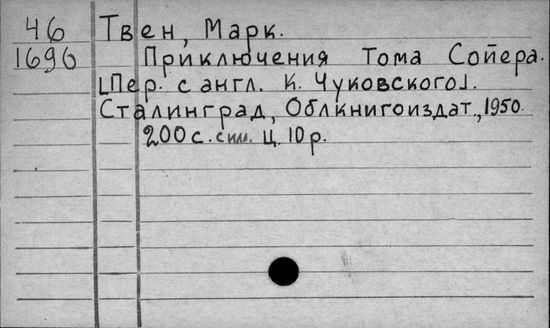 46 Твен, Марк.
1696 Приключения Тома Сойера.
[Пер. с англ. К. Чуковского].
Сталинград, Облкнигоиздат, 1950.
200 с. с илл. Ц. 10 р.